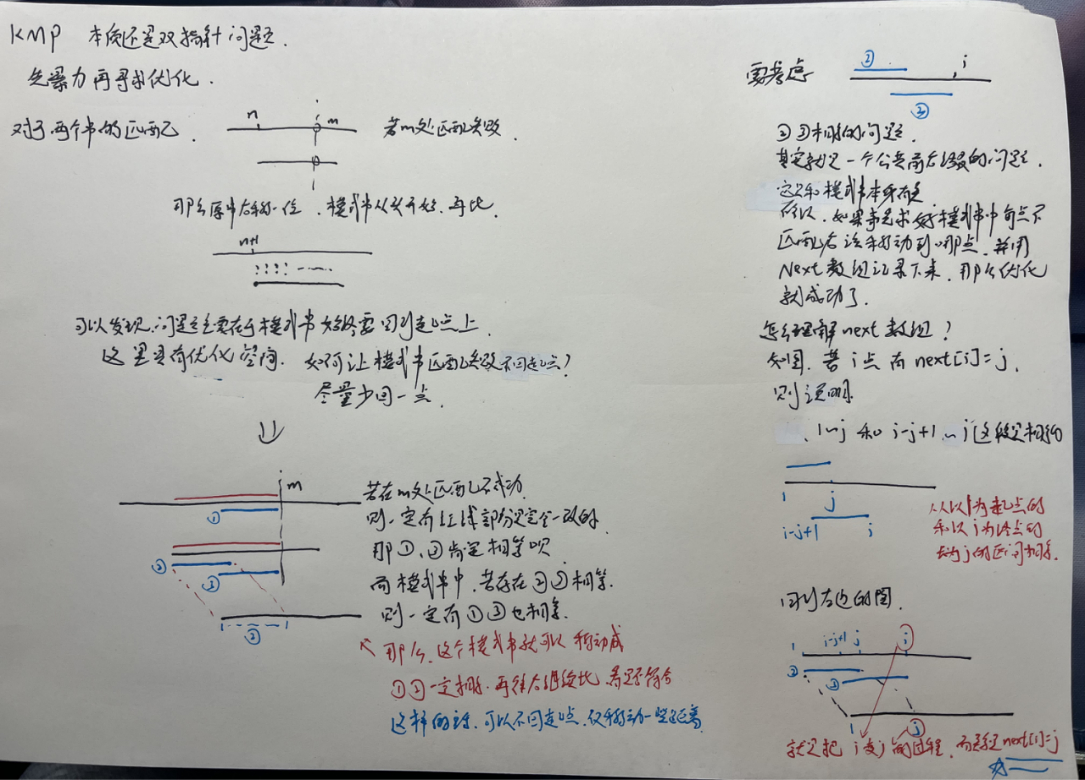 KMP 本质还是双指针问题.
先暴力再寻求优化.
对于两个串的匹配
n
i
m
若m处匹配失败.
那么原串右移一位,模式串从头开始,再比.
n+1
可以发现,问题主要在于模式串始终要回到起点上.
这里具有优化空间. 如何让模式串匹配失败不回起点?
尽量少回一点.
m
①
②
③
②
若在m处匹配不成功.
则一定有红线部分是完全一致的.
那①,③肯定相等呗
而模式串中,若存在②③相等.
则一定有①②也相等.
那么,这个模式串就可以移动成
①②一定相等.再往右继续比,看是否符合
这样的话,可以不回起点,仅移动一些距离
要考虑
②
i
③
②③相等的问题.
其实就是一个公共前后缀的问题.
这只和模式串本身有关
所以,如果事先求好模式串中每点不
匹配后该移动到哪点,并用
Next数组记录下来,那么优化
就成功了.
怎么理解next数组?
如图,若i点有next[i]=j.
则说明.
1~j 和 i-j+1~i这段是相等的
1
j
i-j+1
i
从以1为起点的
和以i为终点的
长为j的区间相等.
回到左边的图.
1
i-j+1
j
i
②
③
1
j
就是把i变j的过程,而这是next[i]=j